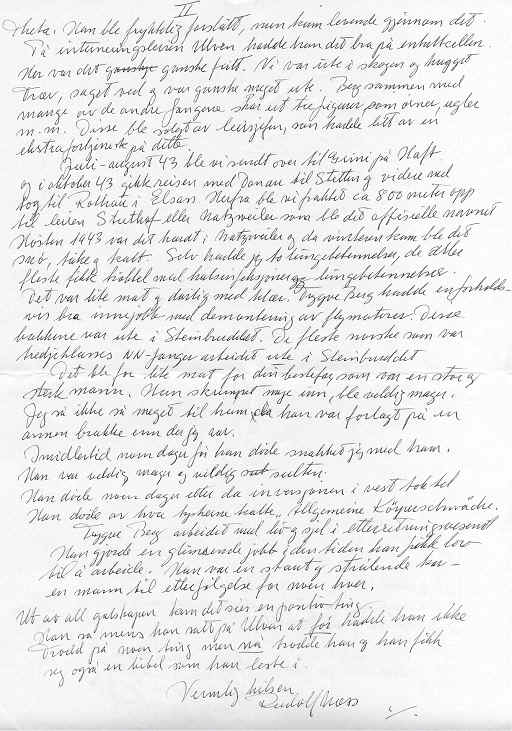 II
theta. Han ble fryktelig forslått, men kom levende gjennom det.
På interneringsleiren Ulven hadde han det bra på enkeltcellen.
Her var det ganske ganske fritt. Vi var ute i skogen og hugget
trær, saget ved og var ganske meget ute. Berg sammen med
mange av de andre fangene skar ut trefigurer som ørner, ugler
m.m. Disse ble solgt av leirsjefen, som hadde litt av en
ekstrafortjeneste på dette.
Juli-august 43 ble vi sendt over til Grini på Haft
og i oktober 43 gikk reisen med Donau til Stettin og videre med
tog til Rothau i Elsass. Herfra ble vi fraktet ca 800 meter opp
til leiren Struthof eller Natzweiler som ble det offisielle navnet
Høsten 1943 var det hardt i Natzweiler og da vinteren kom ble det
snø, tåke og kaldt. Selv hadde jeg to lungebetennelser, de aller
fleste fikk trøbbel med halsinfeksjoner og lungebetennelser.
Det var lite mat og dårlig med klær. Trygve Berg hadde en forholds-
vis bra innejobb med demontering av flymotorer. Denne
brakkene var ute i Steinbruddet. De fleste norske som var
tredjeklasses NN-fanger arbeidet ute i Steinbruddet
Det ble for lite mat for din bestefar som var en stor og
sterk mann. Han skrumpet mye inn, ble veldig mager.
Jeg så ikke så meget til ham, da han var forlagt på en
annen brakke enn der jeg var.
Imidlertid noen dager før han døde snakket jeg med ham.
Han var veldig mager og veldig sulten.
Han døde noen dager etter da invasjonen i vest tok til
Han døde av hva tyskerne kalte, Allgemeine Körperschwäche.
Trygve Berg arbeidet med liv og sjel i etterretningsvesenet
Han gjorde en glimrende jobb i den tiden han fikk lov
til å arbeide. Han var en staut og strålende kar –
en mann til etterfølgelse for noen hver.
Ut av all galskapen kan det sies en positiv ting
Han sa mens han satt på Ulven at før hadde han ikke
trodd på noen ting men nå trodde han og han fikk
seg også en bibel som han leste i.
Vennlig hilsen
Rudolf Næss